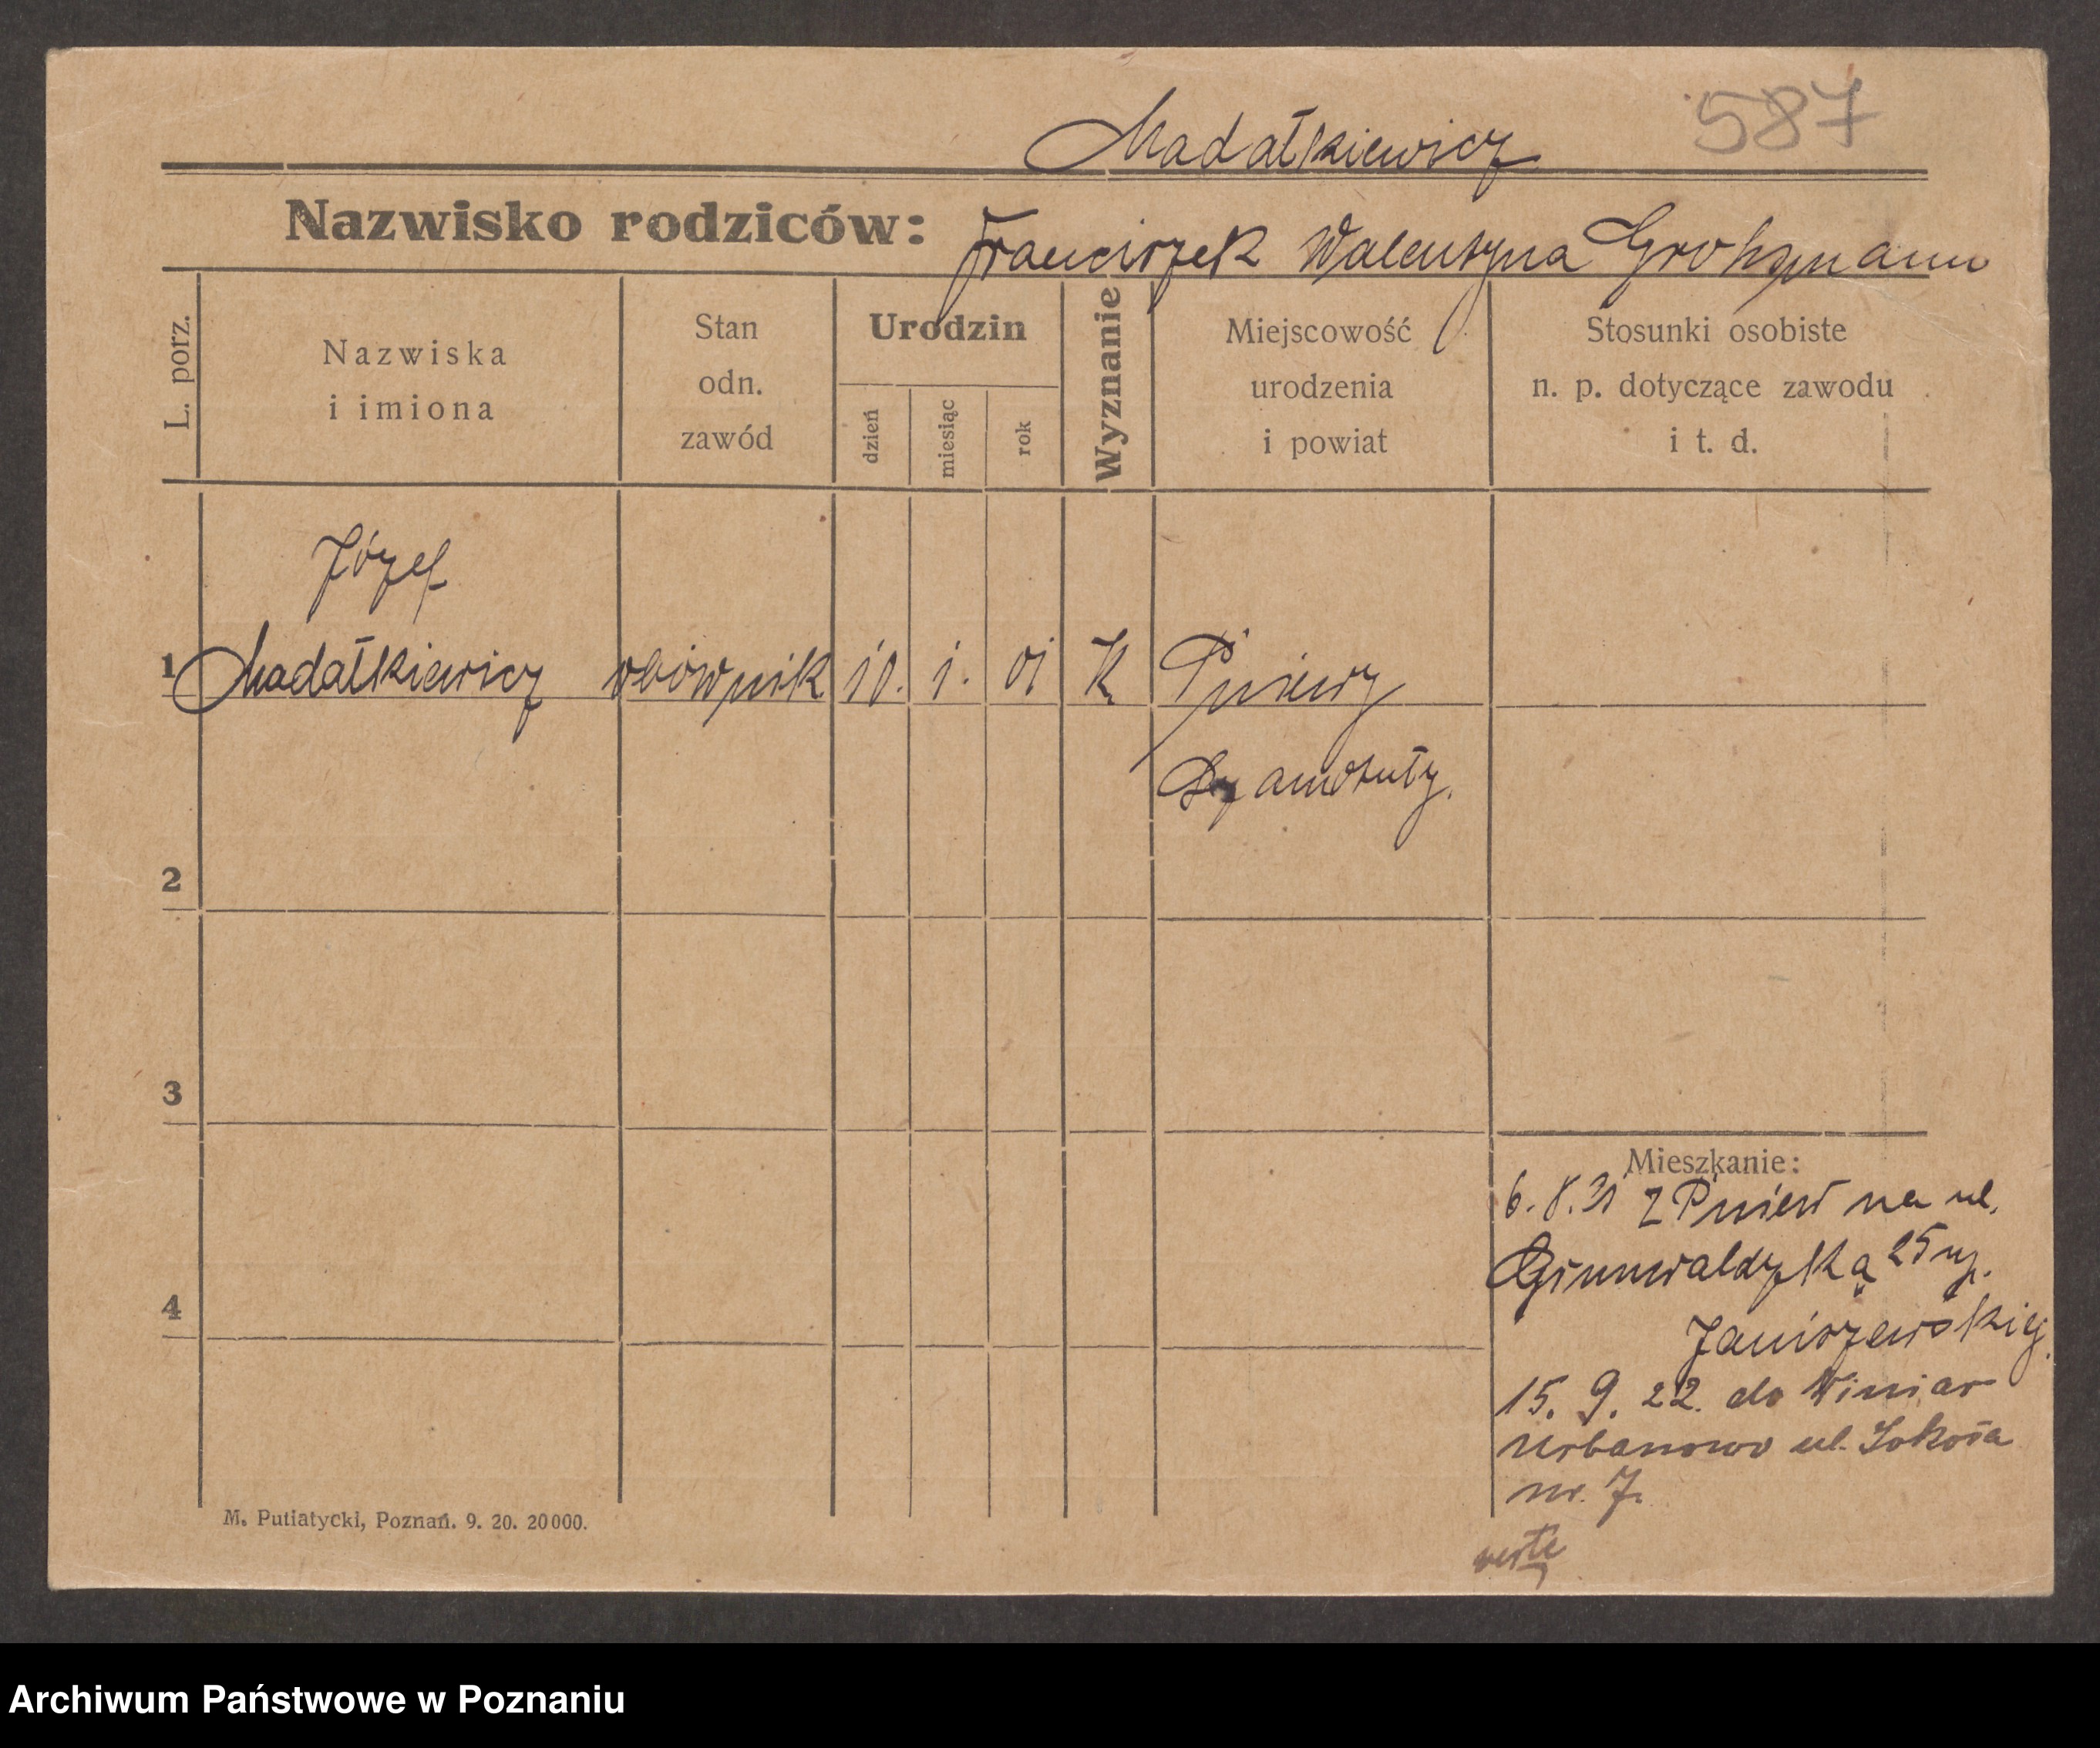 587
Madałkiewicz
Nazwisko rodziców: Franciszek Walentyna Grohsmann
L. porz.
Nazwiska
i imiona
Stan
odn.
zawód
Urodzin
dzień
miesiąc
rok
Wyznanie
Miejscowość
urodzenia
i powiat
Stosunki osobiste
n. p. dotyczące zawodu
i t. d.
Józef
1 Madałkiewicz 10. 1. 01 K Pniewy
Szamotuły.
2
3
4
Mieszkanie:
6. 8. 21 z Pniew na ul.
Grunwaldzką 25
Janiszewskiej
15. 9. 22. do Winiar
Urbanowo ul. Sokoła
nr. 7.
verte
M. Putiatycki, Poznań. 9. 20. 20000.
Archiwum Państwowe w Poznaniu